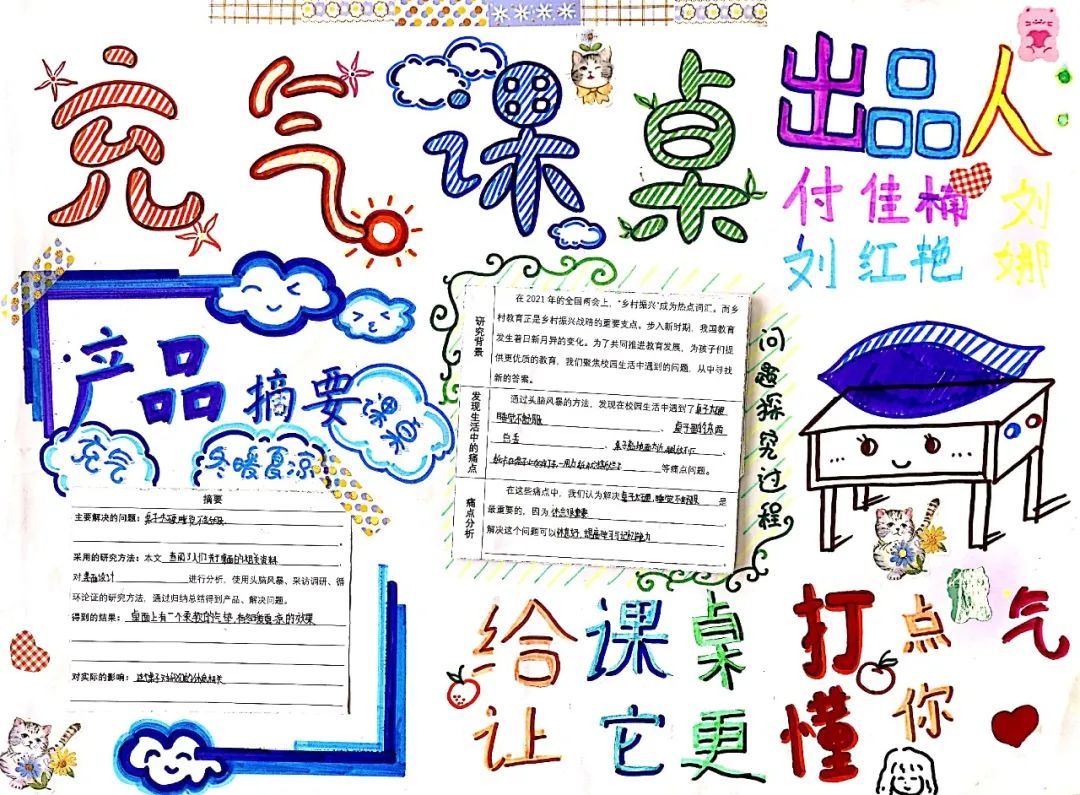 充气课桌
出品人:
付佳楠 刘
刘红艳 娜
产品摘要
柔柔
充气
冬暖夏凉
摘要
主要解决的问题：桌子太硬,睡觉不舒服
采用的研究方法：本文 查阅了人们关于桌面的相关资料
对 桌面设计 进行分析，使用头脑风暴、采访调研、循
环论证的研究方法，通过归纳总结得到产品、解决问题。
得到的结果：桌面上有一个柔软的气垫,有冬暖夏凉的效果
对实际的影响：
研究背景
在 2021 年的全国两会上，“乡村振兴”成为热点词汇。而乡
村教育正是乡村振兴战略的重要支点。步入新时期，我国教育
发生着日新月异的变化。为了共同推进教育发展，为孩子们提
供更优质的教育，我们聚焦校园生活中遇到的问题，从中寻找
新的答案。
发现生活中的痛点
通过头脑风暴的方法，发现在校园生活中遇到了 桌子太硬
睡觉不舒服 、
、
等痛点问题。
痛点分析
在这些痛点中，我们认为解决 桌子太硬,睡觉不舒服 是
最重要的，因为 休息很重要
解决这个问题可以
问题探究过程
给课桌打点气
让它更懂你